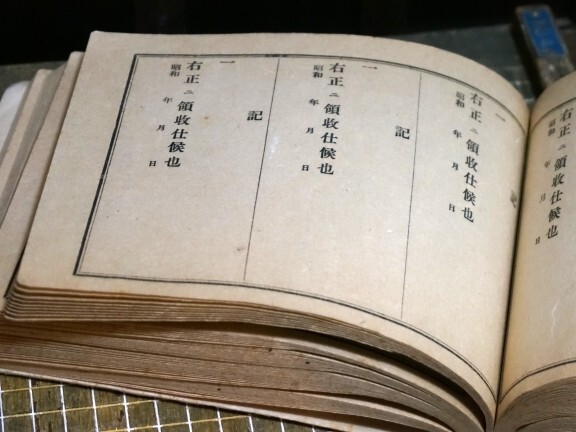 右正ニ領收仕候也
昭和 年 月 日
記
一
右正ニ領收仕候也
昭和 年 月 日
記
一
右正ニ領收仕候也
昭和 年 月 日
記
一
右正ニ領收仕候也
昭和 年 月 日